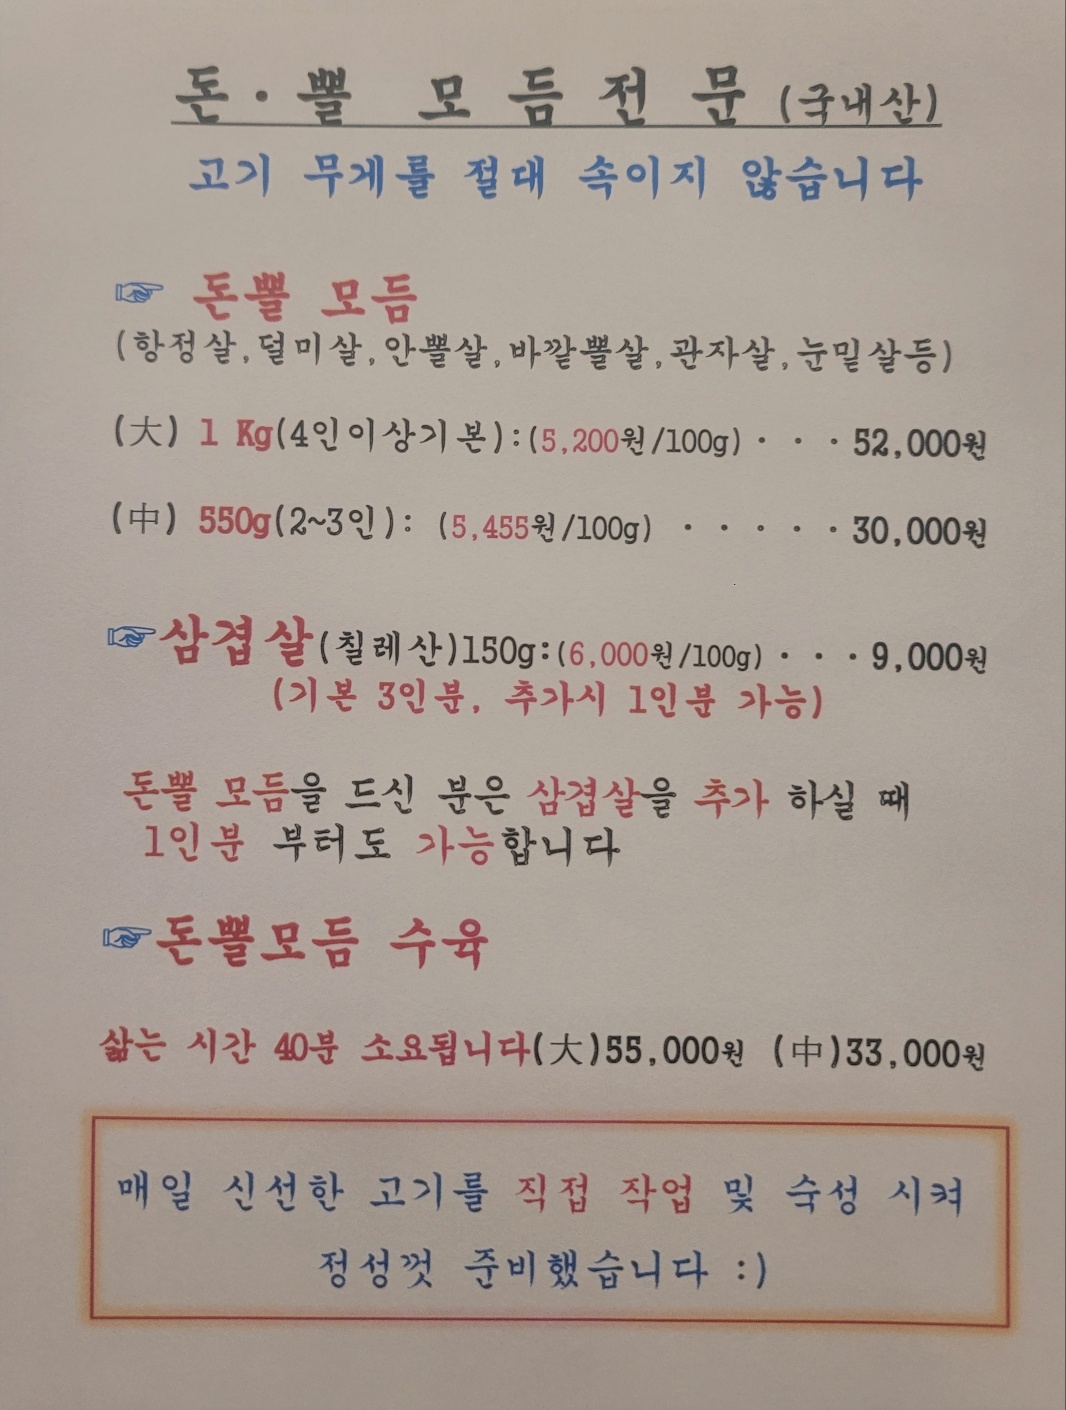 돈·뽈 모듬전문(국내산)
고기 무게를 절대 속이지 않습니다
☞ 돈뽈 모듬
(항정살,덜미살,안뽈살,바깥뽈살,관자살,눈밑살등)
(大) 1 Kg(4인이상기본):(5,200원/100g)· · ·52,000원
(中) 550g(2~3인): (5,455원/100g) · · · · ·30,000원
☞삼겹살(칠레산)150g:(6,000원/100g)· · ·9,000원
(기본 3인분, 추가시 1인분 가능)
돈뽈 모듬을 드신 분은 삼겹살을 추가 하실 때
1인분 부터도 가능합니다
☞돈뽈모듬 수육
삶는 시간 40분 소요됩니다(大)55,000원 (中)33,000원
매일 신선한 고기를 직접 작업 및 숙성 시켜
정성껏 준비했습니다 :)